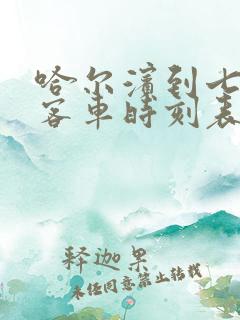 哈尔滨到七
客车时刻表
释迦果
未经同意禁止转载